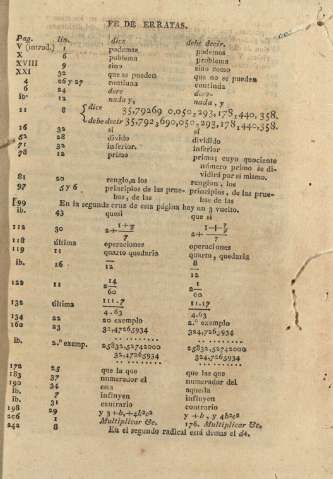 FE DE ERRATAS.
Pag. lin. dice debe decir.
V (introd.) 1 podemas podemos
X 6 poblema problema
XVIII 9 sino sino como
XXI 32 que se pueden que no se pueden
4 26 y 27 contiana contiuda
6 24 dore doce
ib. 12 nada y, nada, y
11 8 dice 35,79269 0,050,293,178,440,358.
debe decir 35,792,690,050,293,178,440,358.
16 32 si
52 28 divido dividido
71 32 inferior. inferior
78 12 primo primo; cuyo quociente
número primo se di-
vidirá por sí mismo.
81 20 renglon los renglon, los
97 5 y 6 principios de las prue- principios, de las prue-
bas, de las bas de las
199 En la segunda cruz de esta página hay un 3 vuelto.
ib. 43 quesi que si
112 30 2+ 1+7/7 2+ 1+7/7
118 última operaciones operaciones
119 11 quarto quedaria quarto, quedaria
ib. 16 /12 8/12
122 11 2 14/60 2 1/60
132 última 111.7/4.63 11.17/4.63
134 22 20 exemplo 2.º exemplo
160 23 32,47265934 324,7265934
ib. 2.º exemp. 25832,52742000 25832,52742000
32,47265934 324,7265934
172 25 que la que que las que
183 37 numerador el numerador del
190 34 esta aquella
ib. 7 infinyen influyen
ib. 31 contrario contrario
198 29 y 3+b,+4b2c2 y +b, y 4b2c2
206 1 Multiplicar &c. 176. Multiplicar &c.
242 8 En el segundo radical está demas el d4.